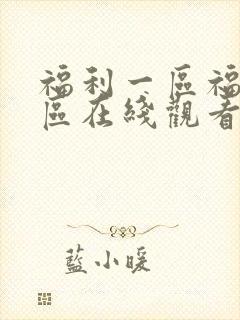 福利一區福
區在綫觀看
藍小暖